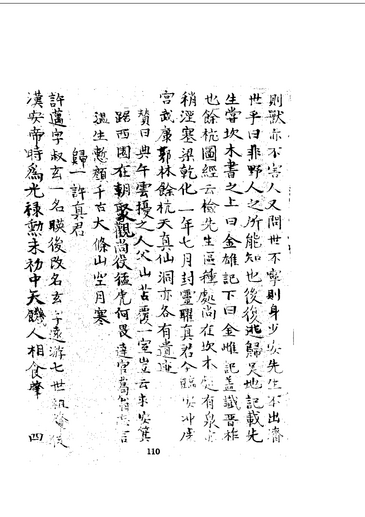 則獸亦不害人又問世不寧則身少安先生不出濟
世乎曰非野人之所能知也後復逃歸吳地記載先
生嘗坎木書之上曰金雄記下曰金雌記蓋讖晉祚
也餘杭圖經云檢先生區種處尚在坎木處有泉
稍湮塞梁乾化一年七月封靈曜真君今臨安沖虛
宮武康郭林餘杭天真仙洞亦各有遺
贊曰典午雲擾之人父山苫覆一室豈云求安箕
踞西園在朝聚觀尚從猛虎何畏達官
過生慙顏千古大滌山空月寒
歸一許真君
許邁字叔玄一名映後改名玄字遠游七世祖
漢安帝時為光祿勳永初中天饑人相食肇
四
110